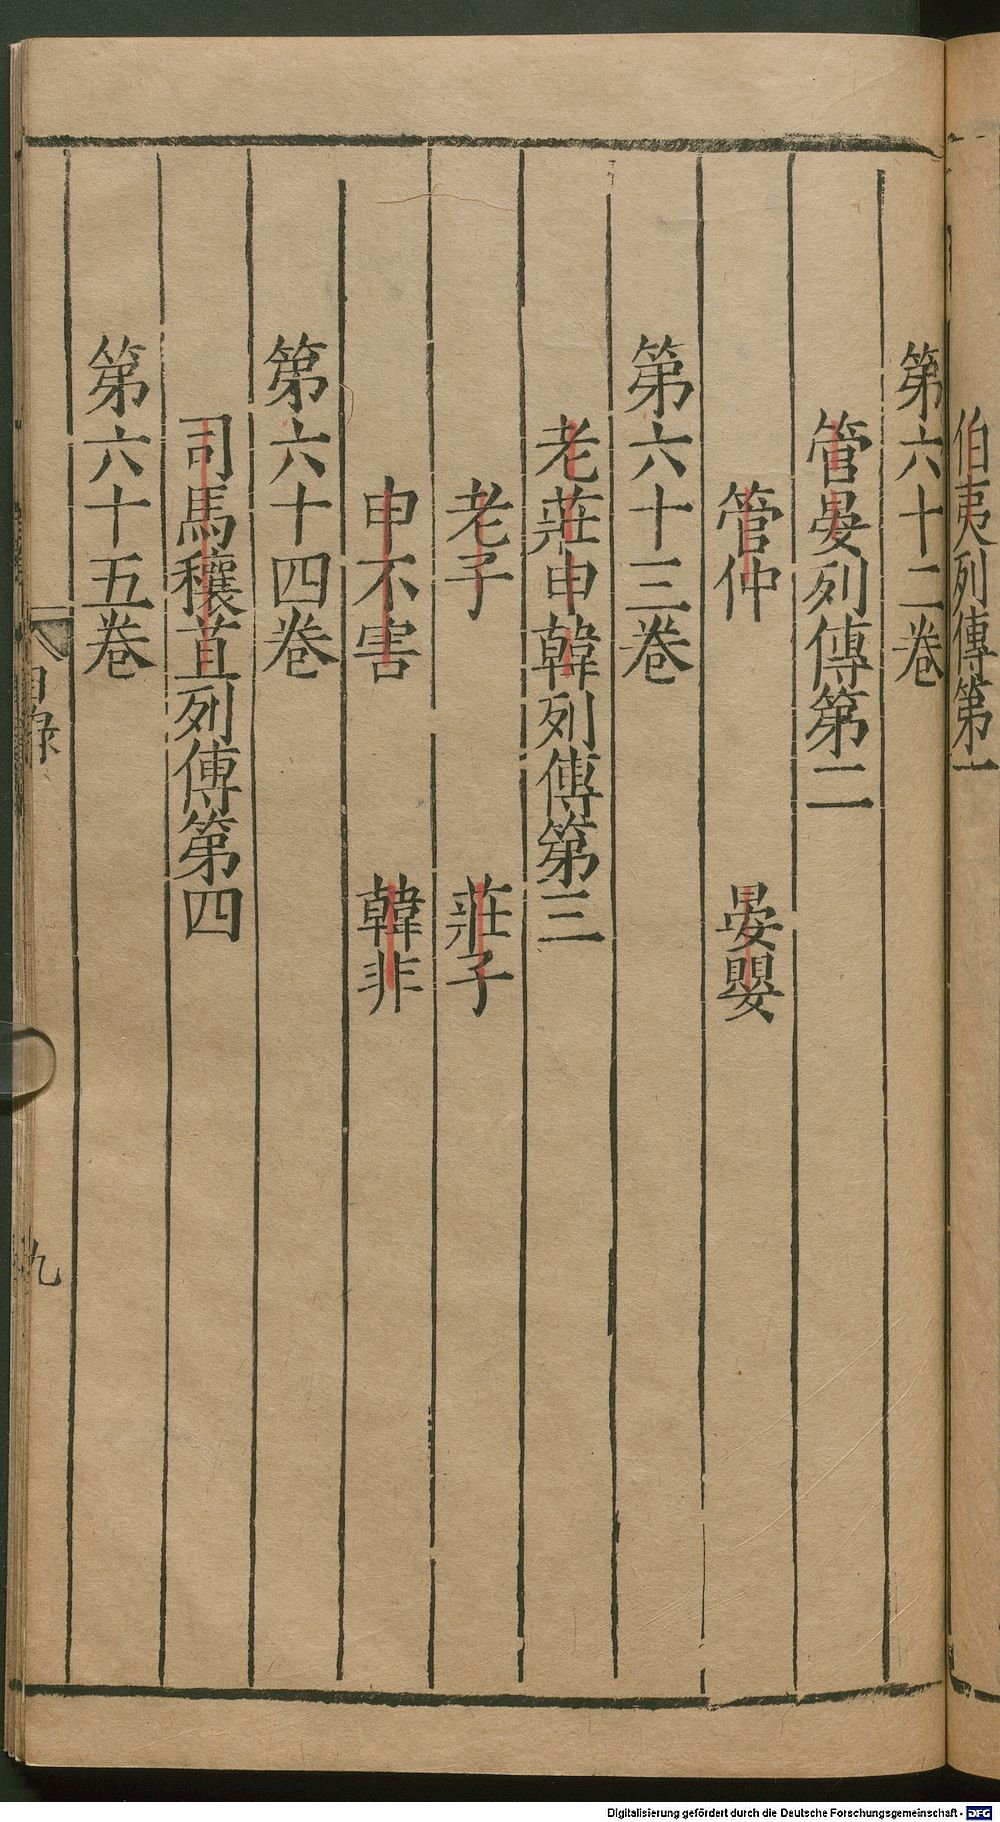 伯夷列傳第一
第六十二卷
管晏列傳第二
管仲 晏嬰
第六十三卷
老莊申韓列傳第三
老子 莊子
申不害 韓非
第六十四卷
司馬穰苴列傳第四
第六十五卷
目錄 九
Digitalisierung gefördert durch die Deutsche Forschungsgemeinschaft - DFG